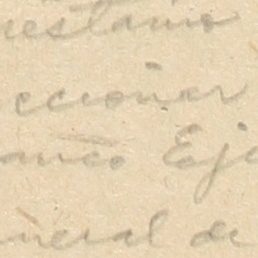 restamo
eccionar
anco Eje
neral de